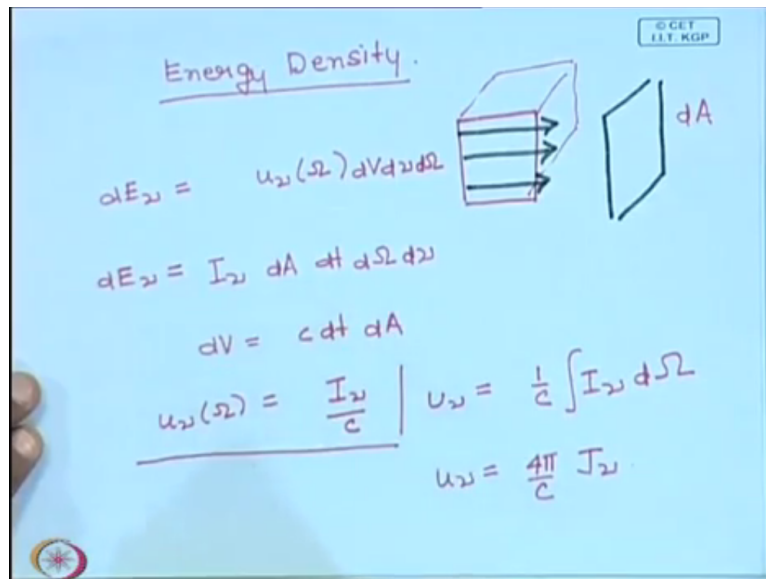 © CET
I.I.T. KGP
Energy Density.
dA
dE_ν = u_ν(Ω) dV dν dΩ
dE_ν = I_ν dA dt dΩ dν
dV = c dt dA
u_ν(Ω) = I_ν/c | u_ν = 1/c ∫ I_ν dΩ
u_ν = 4π/c J_ν